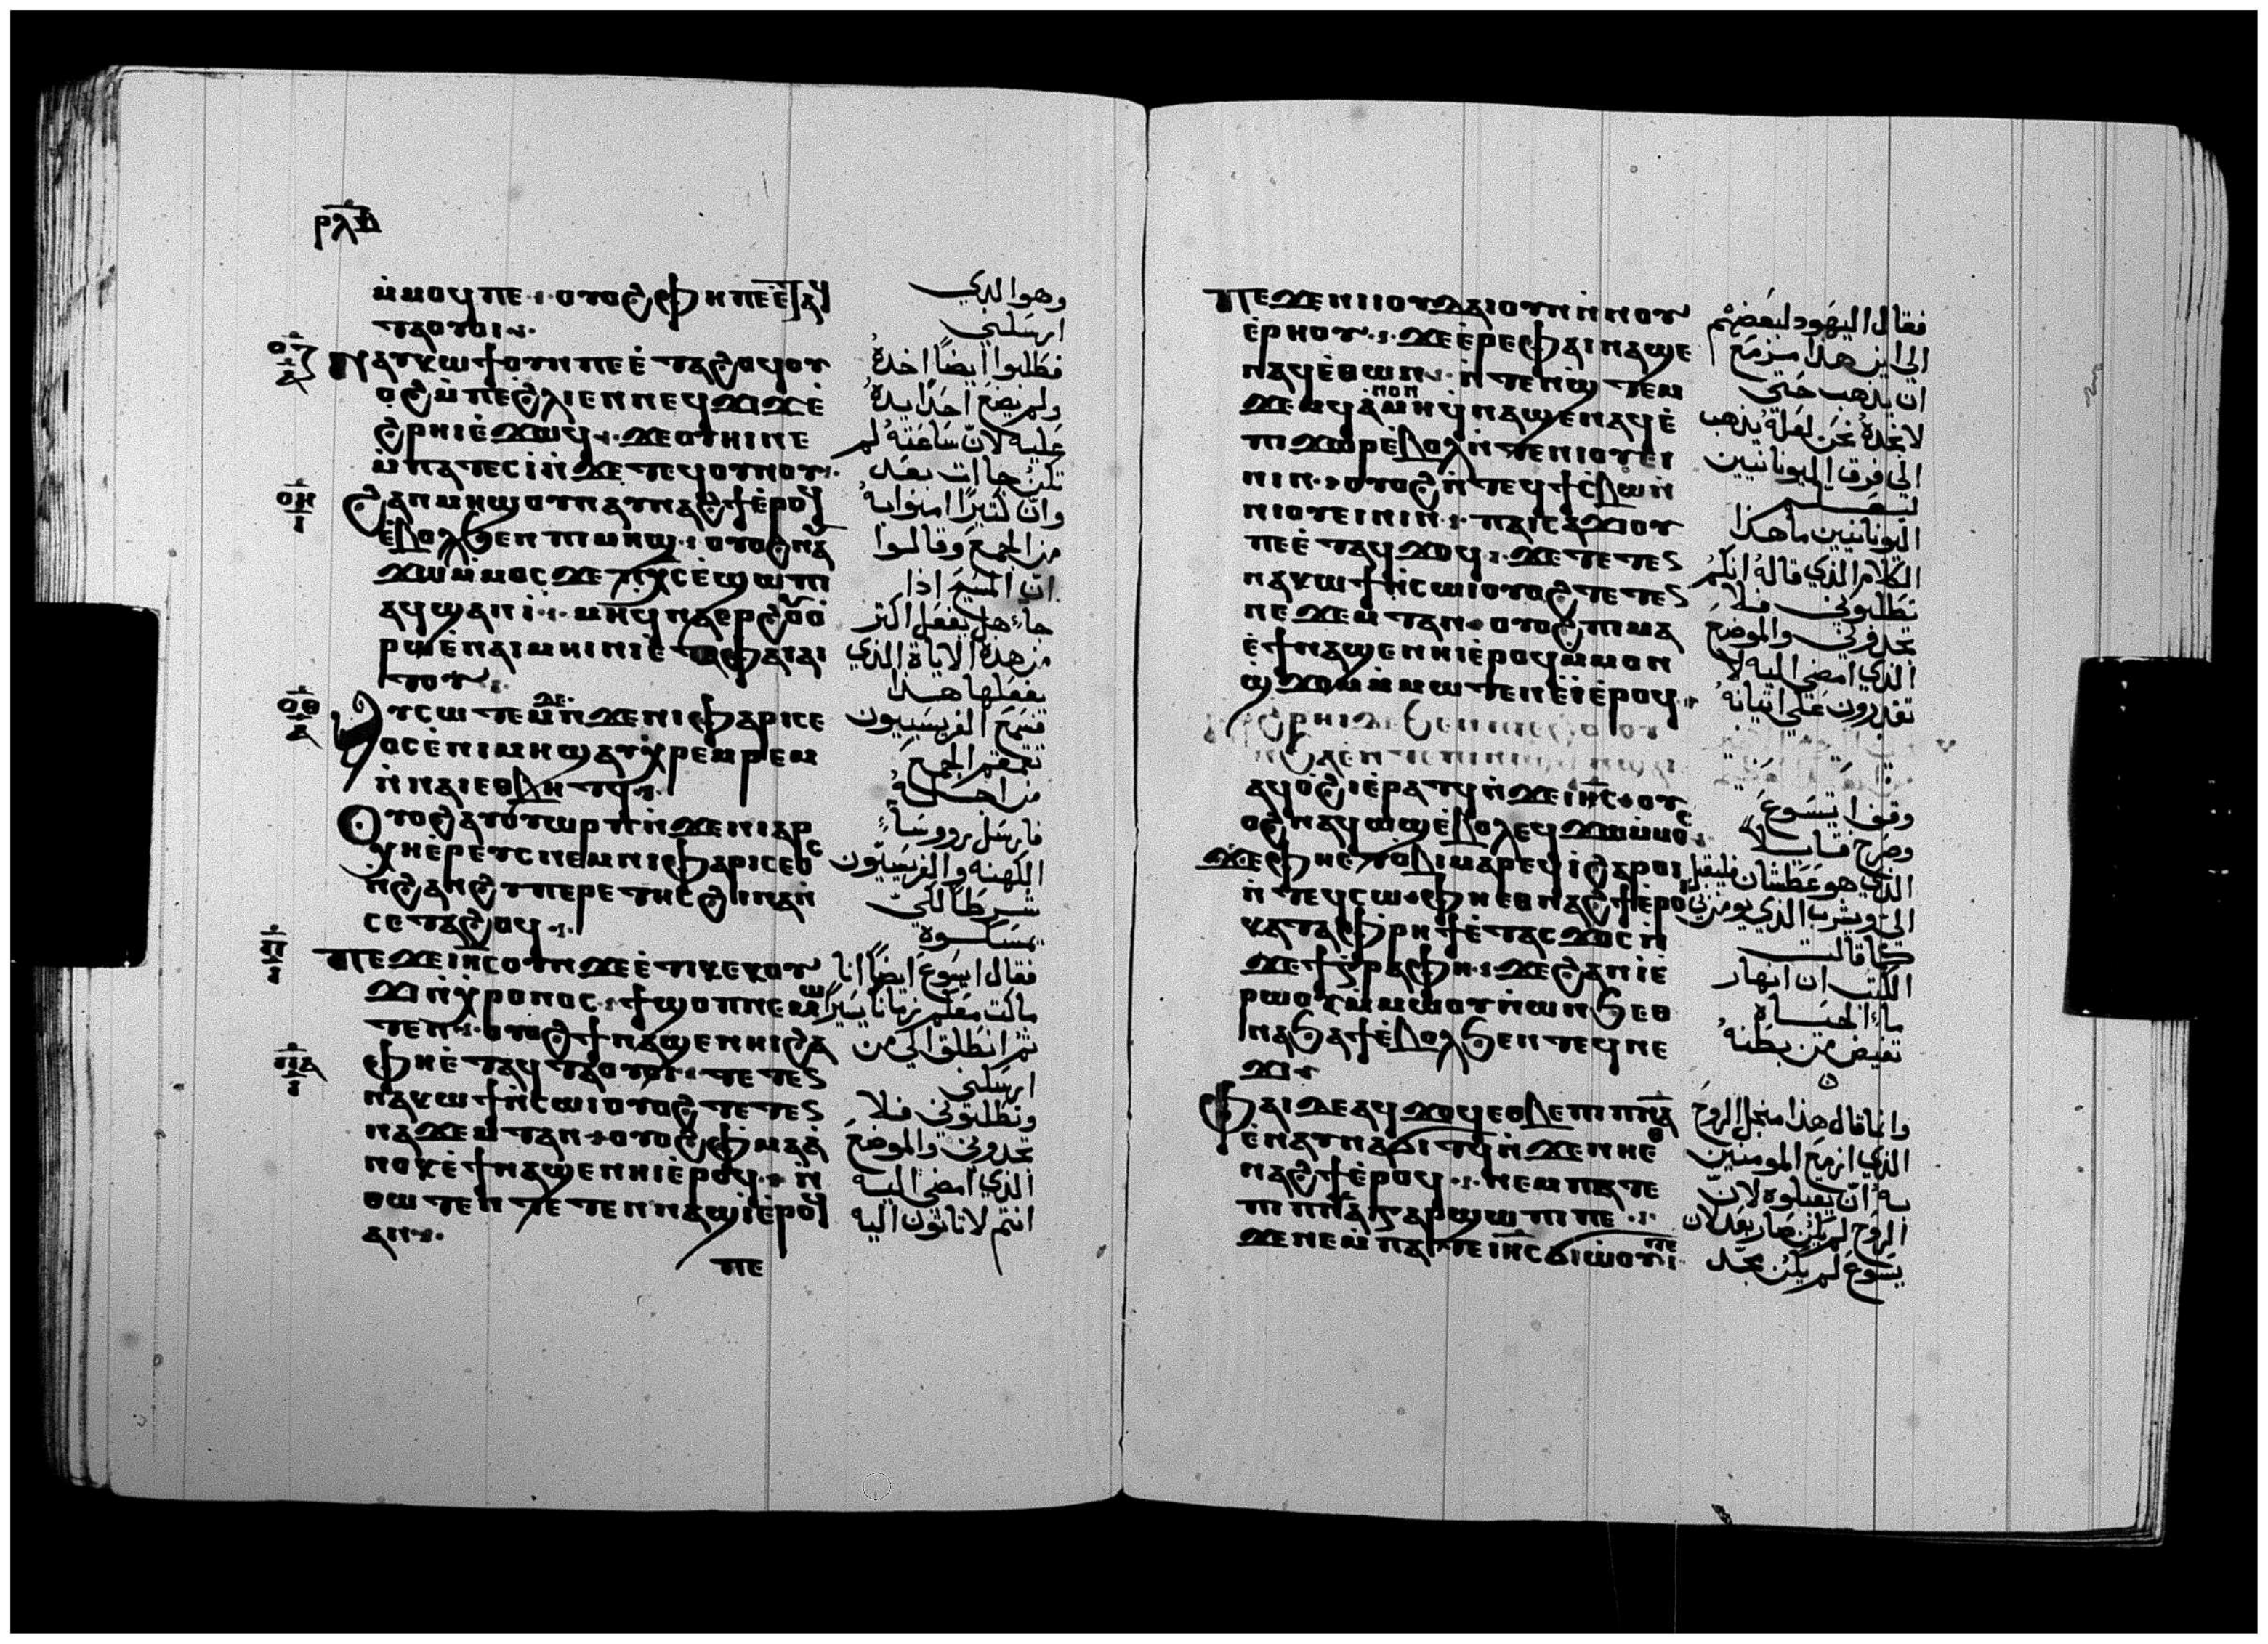 ⲣⲗⲃ
ⲙ̀ⲙⲟϥ ⲡⲉ · ⲟⲩⲟϩ ⲫⲏ ⲡⲉ ⲉ̀ⲧⲁϥ
ⲧⲁⲟⲩⲟⲓ
ⲟⲍ
ⲛⲁⲩⲕⲱϯ ⲟⲩⲛ ⲡⲉ ⲉ̀ⲧⲁϩⲟϥ ⲟⲩ
ⲟϩ ⲙ̀ⲡⲉ ϩⲗⲓ ⲉⲛ ⲛⲉϥϫⲓϫ ⲉ̀
ϩⲣⲏⲓ ⲉ̀ϫⲱϥ ϫⲉ ⲟⲩⲏⲓ ⲛⲉ
ⲙ̀ⲡⲁⲧⲉⲥⲓ̀ ⲛ̀ϫⲉ ⲧⲉϥⲟⲩⲛⲟⲩ
ⲟⲏ
ϩⲁⲛⲙⲏϣ ⲟⲩⲛ ⲁⲩⲛⲁϩϯ ⲉ̀ⲣⲟϥ
ⲉ̀ⲃⲟⲗ ϧⲉⲛ ⲡⲓⲙⲏϣ · ⲟⲩⲟϩ ⲛⲁⲩ
ϫⲱ ⲙ̀ⲙⲟⲥ ϫⲉ ⲡⲭⲥ ⲉ̀ϣⲱⲡ
ⲁϥϣⲁⲛⲓ̀ · ⲙⲏ ϥⲛⲁⲉⲣ ϩⲟⲩⲟ̀
ⲣⲱ ⲉ̀ⲛⲁⲓⲙⲏⲓⲛⲓ ⲉ̀ⲧⲁ ⲫⲁⲓ ⲁⲓ
ⲧⲟⲩ
ⲟⲑ
ⲁⲩⲥⲱⲧⲉⲙ ⲇⲉ ⲛ̀ϫⲉ ⲛⲓⲫⲁⲣⲓⲥⲉ
ⲟⲥ ⲉ̀ⲡⲓⲙⲏϣ ⲁⲩⲭⲣⲉⲙⲣⲉⲙ
ⲛ̀ⲛⲁⲓ ⲉⲑⲃⲏⲧϥ
ⲟⲩⲟϩ ⲁⲩⲟⲩⲱⲣⲡ ⲛ̀ϫⲉ ⲛⲓⲁⲣ
ⲭⲏⲉ̀ⲣⲉⲩⲥ ⲛⲉⲙ ⲛⲓⲫⲁⲣⲓⲥⲉⲟⲥ
ⲛ̀ϩⲁⲛϩⲩⲡⲉⲣⲉⲧⲏⲥ ϩⲓⲛⲁ ⲛ̀
ⲥⲉⲧⲁϩⲟϥ
ⲡ
ⲡⲉϫⲉ ⲓⲏⲥ ⲟⲩⲛ ϫⲉ ⲉ̀ⲧⲓ ⲕⲉⲕⲟⲩ
ϫⲓ ⲛ̀ⲭⲣⲟⲛⲟⲥ · ϯϣⲟⲡ ⲛⲉⲙⲱ
ⲧⲉⲛ · ⲟⲩⲟϩ ϯⲛⲁϣⲉ ⲛⲏⲓ ϩⲁ
ⲫⲏ ⲉ̀ⲧⲁϥⲧⲁⲟⲩⲟⲓ · ⲧⲉⲧⲉⲛ
ⲡⲁ
ⲛⲁⲕⲱϯ ⲛ̀ⲥⲱⲓ ⲟⲩⲟϩ ⲧⲉⲧⲉⲛ
ⲛⲁϫⲉⲙⲧ ⲁⲛ · ⲟⲩⲟϩ ⲫⲙⲁ ⲁ̀
ⲛⲟⲕ ⲉ̀ϯⲛⲁϣⲉ ⲛⲏⲓ ⲉ̀ⲣⲟϥ · ⲛ̀
ⲑⲱⲧⲉⲛ ⲧⲉⲧⲉⲛⲛⲁϣⲓ̀ ⲉ̀ⲣⲟϥ
ⲁⲛ
ⲡⲉ
وهو الذي
ارسلني
فطلبوا ايضاً اخذهُ
ولم يضع احدًا يدهُ
عليه لانّ ساعته لم
تكن جاات بعد
وانّ كثيرًا امنوا به
من الجمع وقالوا
انّ المسيح اذا
جاء هل يفعل اكثر
من هذه الاياة الذي
يفعلها هذا
فسمع الفريسيون
تقمقم الجمع
من اجله
فارسل رووسَاءِ
الكهنه والفريسيّون
شرطًا لكي
يمسكوه
فقال ايسوع ايضاً انا
ماكث معكم زمانا يسيراً
ثمّ انطلق الي من
ارسلني
وتطلبوني فلا
تجدوني والموضع
الذي امضي اليه
انتم لا تاتون اليه
ⲡⲉϫⲉ ⲛⲓⲓⲟⲩⲇⲁⲓ ⲟⲩⲛ ⲛ̀ⲛⲟⲩ
ⲉ̀ⲣⲏⲟⲩ · ϫⲉ ⲉ̀ⲣⲉ ⲫⲁⲓ ⲛⲁϣⲉ
ⲛⲁϥ ⲉ̀ⲑⲱⲛ · ⲛ̀ⲧⲉⲛϣⲧⲉⲙ
ϫⲉⲙϥ ⲁ̀ⲛⲟⲛ ⲙⲏ ϥⲛⲁϣⲉ ⲛⲁϥ ⲉ̀
ⲡⲓϫⲱⲣ ⲉ̀ⲃⲟⲗ ⲛ̀ⲧⲉ ⲛⲓⲟⲩⲉⲓ
ⲛⲓⲛ · ⲟⲩⲟϩ ⲛ̀ⲧⲉϥϯⲥ̀ⲃⲱ ⲛ̀
ⲛⲓⲟⲩⲉⲓⲛⲓⲛ · ⲡⲁⲓⲥⲁϫⲓ ⲟⲩ
ⲡⲉ ⲉ̀ⲧⲁϥϫⲟϥ · ϫⲉ ⲧⲉⲧⲉⲛ
ⲛⲁⲕⲱϯ ⲛ̀ⲥⲱⲓ ⲟⲩⲟϩ ⲧⲉⲧⲉⲛ
ⲛⲉ ϫⲉⲙⲧ ⲁⲛ · ⲟⲩⲟϩ ⲡⲓⲙⲁ
ⲉ̀ϯⲛⲁϣⲉ ⲛⲏⲓ ⲉ̀ⲣⲟϥ ⲙ̀ⲙⲟⲛ
ϣ̀ϫⲟⲙ ⲙ̀ⲙⲱⲧⲉⲛ ⲉ̀ⲓ̀ ⲉ̀ⲣⲟϥ
ⲁϥⲟ̀ϩⲓ ⲉ̀ⲣⲁⲧϥ ⲛ̀ϫⲉ ⲓⲏⲥ · ⲟⲩ
ⲟϩ ⲛⲁϥⲱϣ ⲉ̀ⲃⲟⲗ ⲉϥϫⲱ ⲙ̀ⲙⲟⲥ
ϫⲉ ⲫⲏ ⲉⲧⲟⲃⲓ ⲙⲁⲣⲉϥⲓ̀ ϩⲁⲣⲟⲓ
ⲛ̀ⲧⲉϥⲥⲱ · ⲫⲏ ⲉⲑⲛⲁϩϯ ⲉ̀ⲣⲟⲓ
ⲕⲁⲧⲁ ⲫⲣⲏϯ ⲉ̀ⲧⲁⲥϫⲟⲥ ⲛ̀
ϫⲉ ϯⲅⲣⲁⲫⲏ · ϫⲉ ϩⲁⲛⲓⲉ̀
ⲣⲱⲟⲩ ⲙ̀ⲙⲱⲟⲩ ⲛ̀ⲱⲛϧ ⲉⲑ
ⲛⲁϧⲁϯ ⲉ̀ⲃⲟⲗ ϧⲉⲛ ⲧⲉϥⲛⲉ
ϫⲓ
ⲫⲁⲓ ⲇⲉ ⲁϥϫⲟϥ ⲉⲑⲃⲉ ⲡⲓⲡⲛⲁ
ⲉ̀ⲛⲁⲩⲛⲁϭⲓⲧϥ ⲛ̀ϫⲉ ⲛⲏ ⲉⲑ
ⲛⲁϩϯ ⲉ̀ⲣⲟϥ · ⲛⲉ ⲙⲡⲁⲧⲉ
ⲡⲓⲡⲛⲁ ⲅⲁⲣ ϣⲱⲡⲓ ⲡⲉ ·
ϫⲉ ⲛⲉ ⲙ̀ⲡⲁⲧⲉ ⲓⲏⲥ ϭⲓⲱ̀ⲟⲩ ⲡⲉ
فقال اليهود لبعضهم
الي اين هذا مزمع
ان يذهب حتي
لا نجده نحن لعلّه يذهب
الي فرق اليونانيين
اليونانيين ما هذا
الكلام الذي قاله انكم
تطلبوني فلا
تجدوني والموضع
الذي امضي اليه لا
تقدرون علي اتيانه
وقف ايسوع
وصرخ قايلاً
الذي هو عطشان فليقبل
اليّ ويشرب الذي يومن بي
كما قالت
الكتب ان انهار
ماء الحياه
تفيض من بطنه
وانما قال هذا من اجل الروح
الذي ازمع المومنين
به انّ يقبلوه لانّ
الروح لم يكن صار بعد لان
يسوع لم يكن مجّد